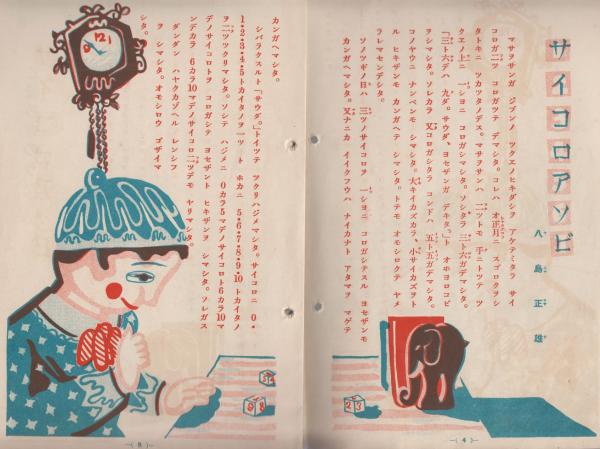 サイコロアソビ
八島正雄
マサヲサンガ ジブンノ ツクエノヒキダシヲ アケテミタラ サイ
コロガ 二ツ コロガツテ デマシタ。コレハ オ正月ニ スゴロクヲシ
タトキニ ツカツタノデス。マサヲサンハ 二ツトモ 手ニトツテ ツ
クエノ上ニ 一シヨニ コロガシマシタ。ソシタラ 三ト六ガデマシタ。
「三ト六デハ 九ダ。サウダ、ヨセザンガ デキタ。」ト オホヨロコビ
ヲシマシタ。ソレカラ 又コロガシタラ コンドハ 五ト五ガデマシタ。
コノヤウニ ナンベンモ シマシタ。大キイカズカラ、小サイカズヲト
ル ヒキザンモ カンガヘテ シマシタ。トテモ オモシロクテ ヤメ
ラレマセンデシタ。
ソノツギノ日ハ 三ツノサイコロヲ 一シヨニ コロガシテスル ヨセザンモ
カンガヘマシタ。又ナニカ イイクフウハ ナイカナト アタマヲ マゲテ
カンガヘマシタ。
シバラクスルト「サウダ。」トイツテ ツクリハジメマシタ。サイコロニ 0・
1・2・3・4・5トカイタノヲ一ツ ト ホカニ 5・6・7・8・9・10 トカイタノ
ヲ 二ツツクリマシタ。ソシテ ハジメニ 0カラ5マデノサイコロト6カラ10マ
デノサイコロトヲ コロガシテ ヨセザント ヒキザンヲ シマシタ。ソレガス
ンデカラ 6カラ10マデノサイコロ二ツデモ ヤリマシタ。
ダンダン ハヤクカゾヘル レンシフ
ヲ シマシタ。オモシロウ ゴザイマ
シタ。
12
9
2 3
8 9
—( 4 )—